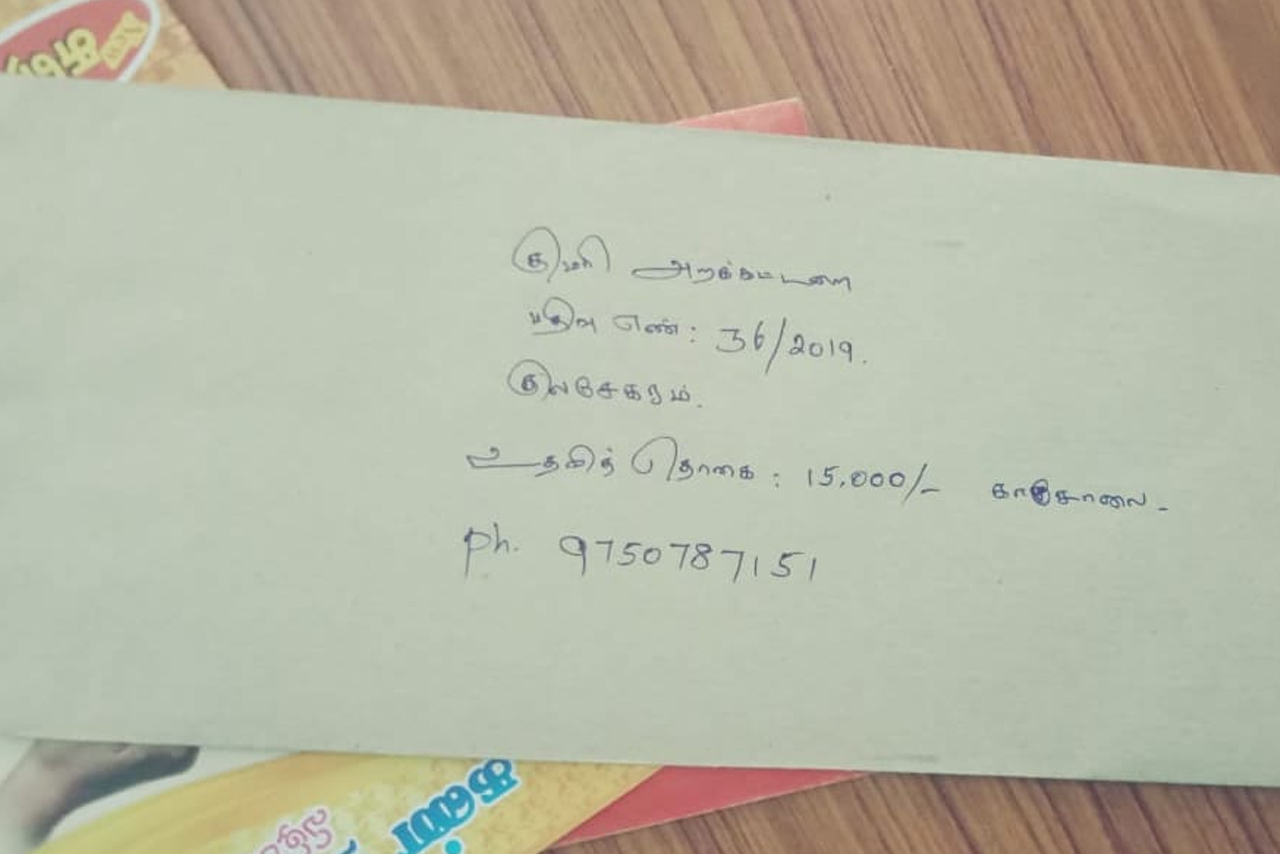 குமரி அறக்கட்டளை
பதிவு எண்: 36/2019.
குலசேகரம்.
உதவித் தொகை: 15,000/- காசோலை-
Ph. 9750787151